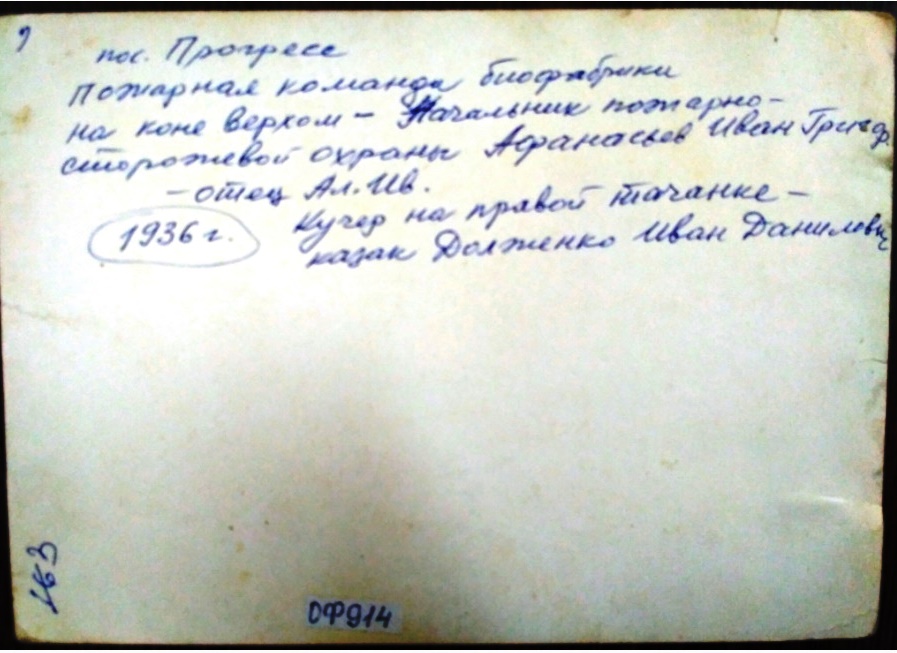 9
пос. Прогресс
Пожарная команда биофабрики
на коне верхом – Начальник пожарно-
сторожевой охраны Афанасьев Иван Григ
– отец Ал. Ив.
1936 г.
Кучер на правой тачанке –
казак Долженко Иван Данилович
ОФ914